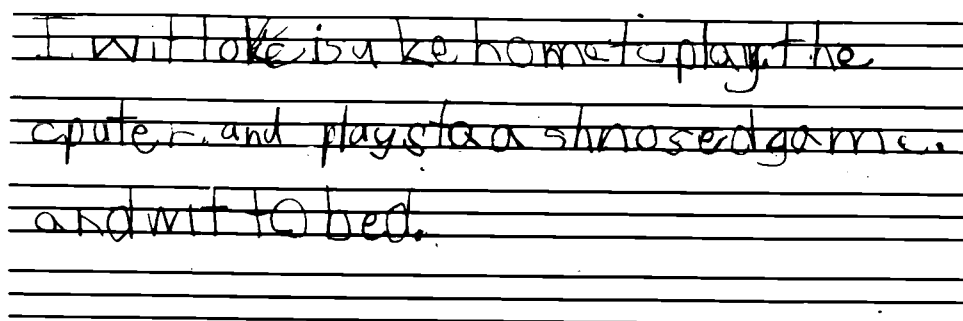 I wit to is u ke home to play the
cputer. and play staa shnosed game.
and wit to bed.